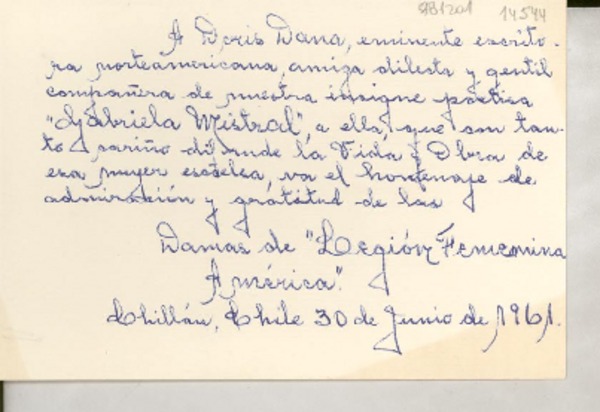 981201 14544
A Doris Dana, eminente escrito-
ra norteamericana, amiga dilecta y gentil
compañera de nuestra insigne poetisa
"Gabriela Mistral", a ella, que con tan-
to cariño difunde la Vida y Obra de
esa mujer excelsa, va el homenaje de
admiración y gratitud de las
Damas de "Legión Femenina
América".
Chillán, Chile 30 de Junio de 1961.